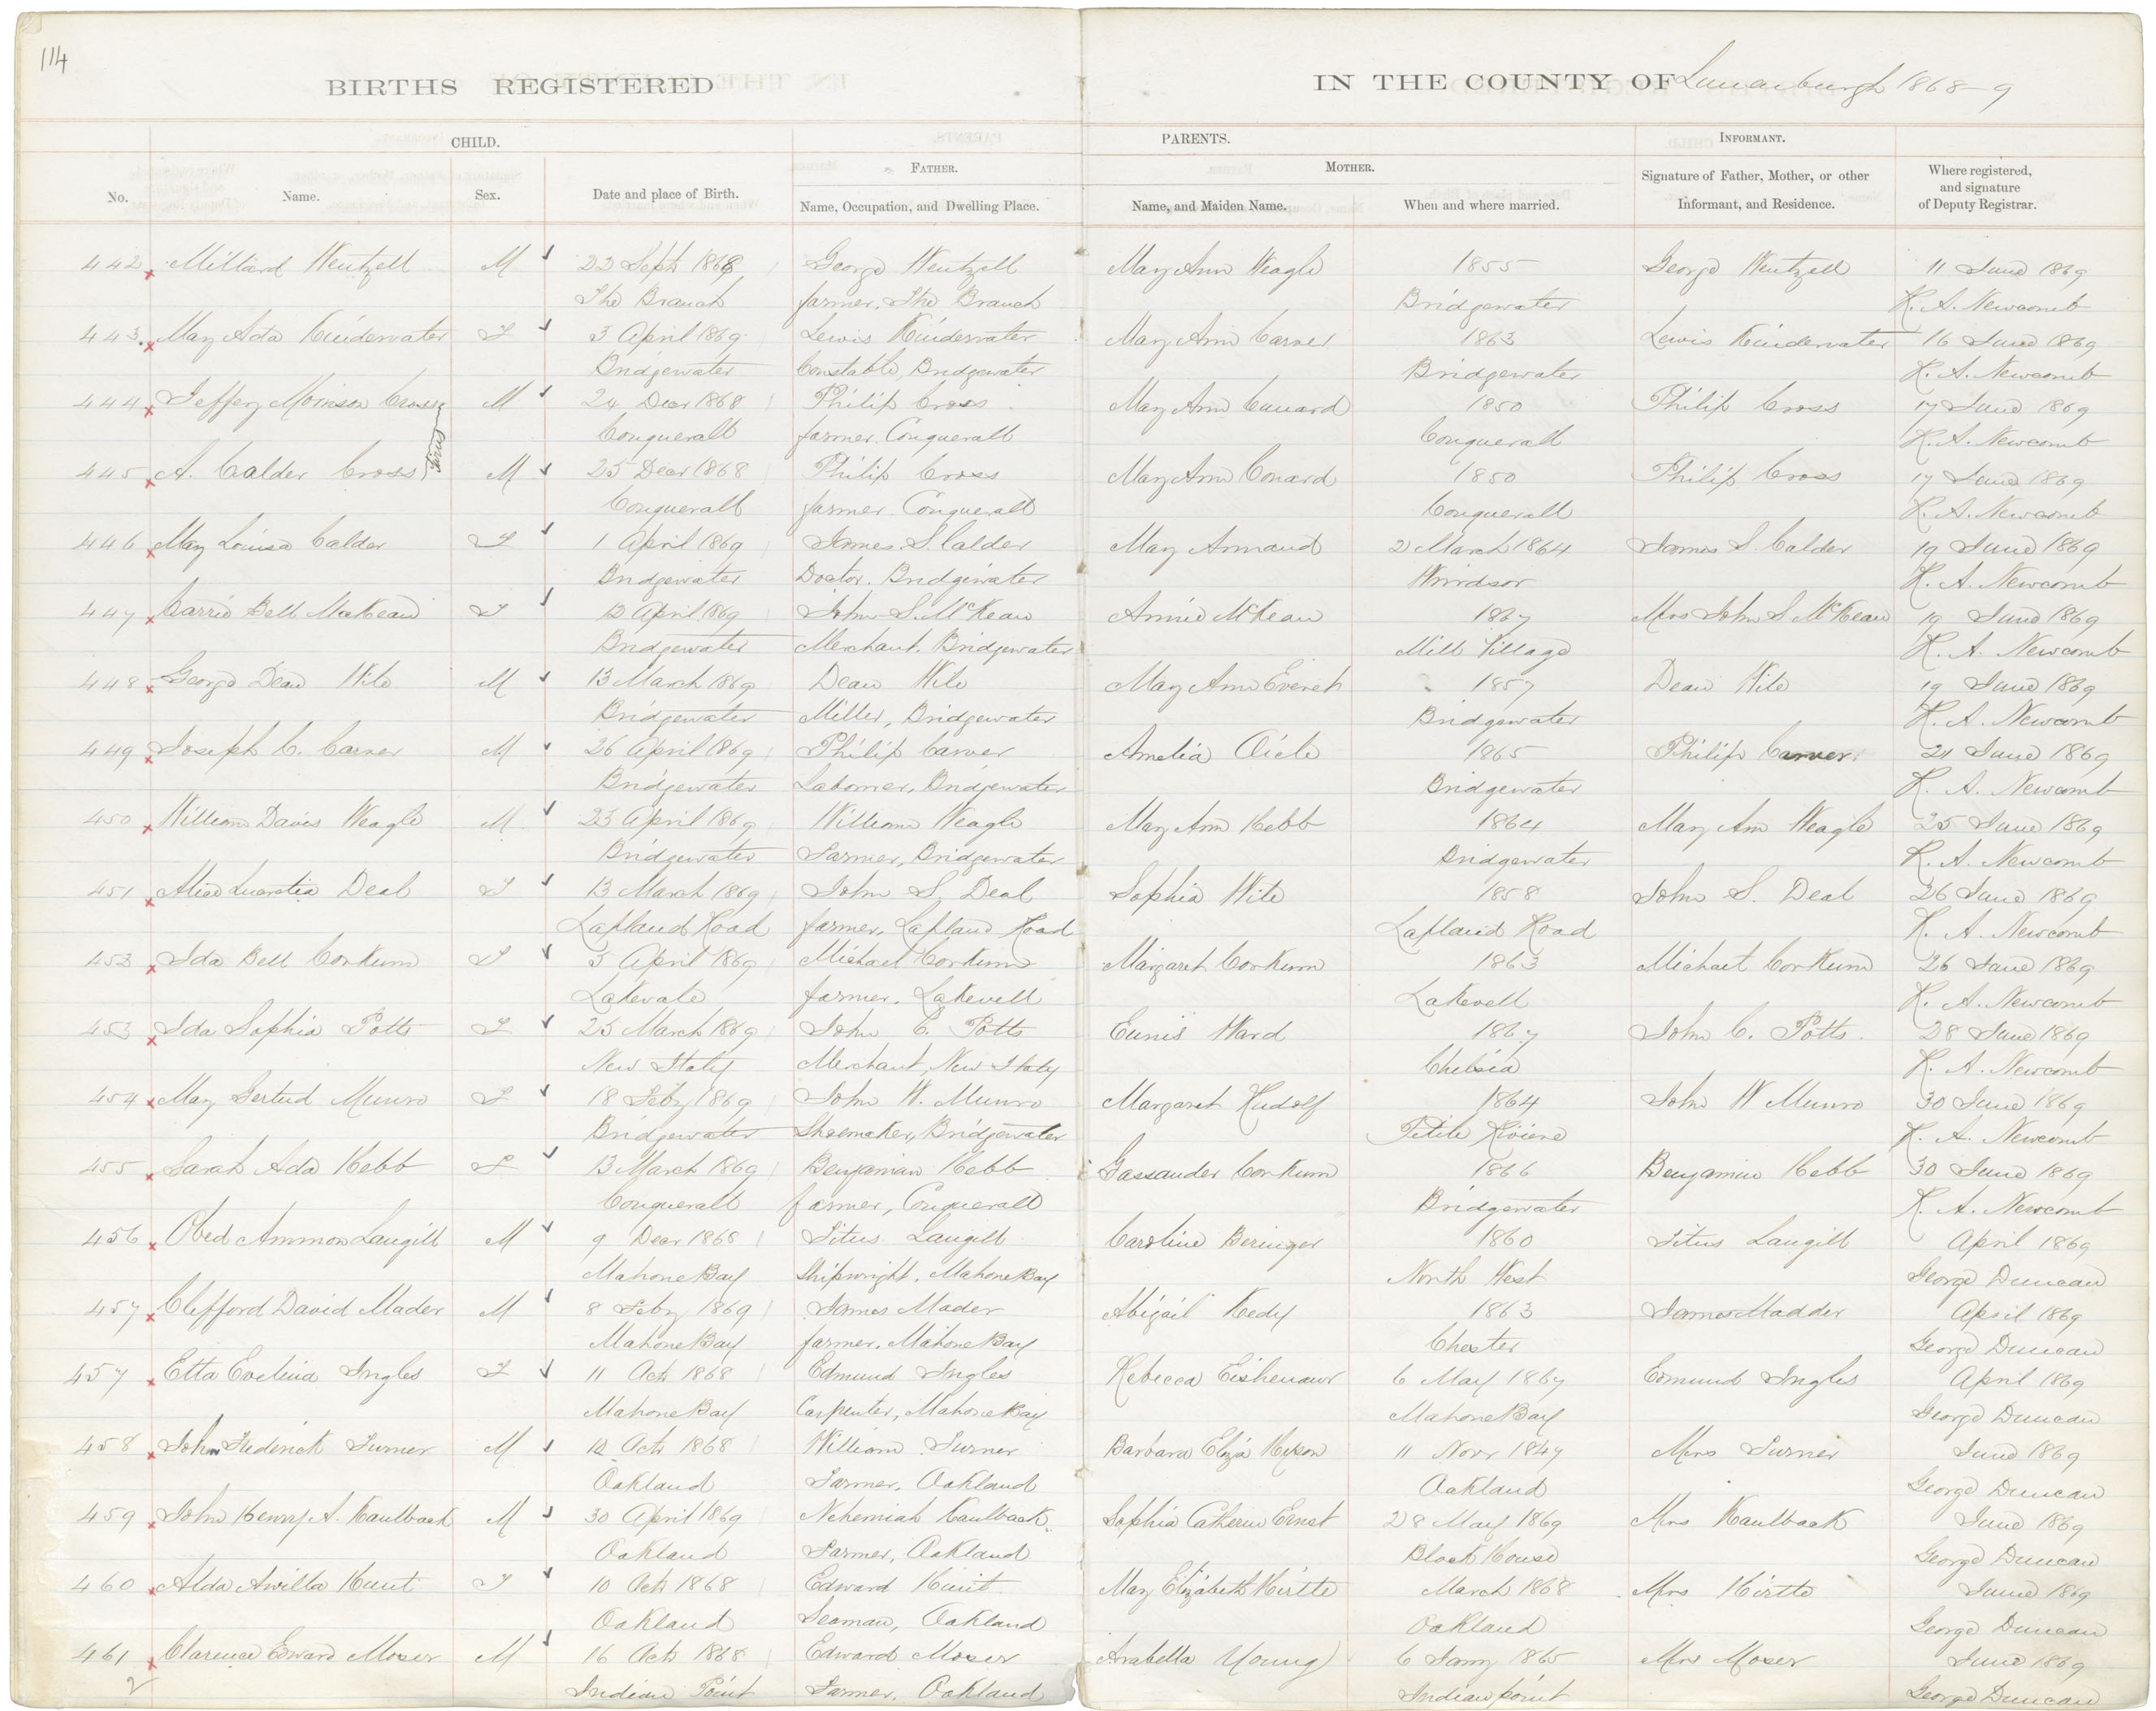 114
BIRTHS REGISTERED IN THE COUNTY OF Lunenburgh 1868-9
CHILD. PARENTS. INFORMANT.
FATHER. MOTHER.
No. Name. Sex. Date and place of Birth. Name, Occupation, and Dwelling Place. Name, and Maiden Name. When and where married. Signature of Father, Mother, or other Informant, and Residence. Where registered, and signature of Deputy Registrar.
442 Millard Wentzell M 22 Sept 1868 George Wentzell Mary Ann Weagle 1855 George Wentzell 11 June 1869
The Branch farmer, The Branch Bridgewater H. A. Newcomb
443 May Ada Kinderwater F 3 April 1869 Lewis Kinderwater Mary Ann Carver 1863 Lewis Kinderwater 16 June 1869
Bridgewater Constable, Bridgewater Bridgewater H. A. Newcomb
444 Jeffery Morrison Cross M 24 Decr 1868 Philip Cross Mary Ann Conard 1850 Philip Cross 17 June 1869
Conquerall farmer. Conquerall Conquerall H. A. Newcomb
Twins
445 A. Calder Cross M 25 Decr 1868 Philip Cross Mary Ann Conard 1850 Philip Cross 17 June 1869
Conquerall farmer. Conquerall Conquerall H. A. Newcomb
446 May Louisa Calder F 1 April 1869 James. S. Calder Mary Armand 2 March 1864 James S. Calder 19 June 1869
Bridgewater Doctor. Bridgewater Windsor H. A. Newcomb
447 Carrie Bell McKean F 12 April 1869 John S. McKean Annie McKean 1867 Mrs John S McKean 19 June 1869
Bridgewater Merchant. Bridgewater Mill Village H. A. Newcomb
448 George Dean Wile M 13 March 1869 Dean Wile Mary Ann Everet 1857 Dean Wile 19 June 1869
Bridgewater Miller, Bridgewater Bridgewater H. A. Newcomb
449 Joseph C. Carver M 26 April 1869 Philip Carver Amelia 1865 Philip Carver 21 June 1869
Bridgewater Laborner, Bridgewater Bridgewater H. A. Newcomb
450 William Davis Weagle M 23 April 1869 William Weagle Mary Ann Hebb 1864 Mary Ann Weagle 25 June 1869
Bridgewater Farmer, Bridgewater Bridgewater H. A. Newcomb
451 Alice Lucretia Deal F 13 March 1869 John S. Deal Sophia Wile 1858 John S. Deal 26 June 1869
Lapland Road farmer, Lapland Road Lapland Road H. A. Newcomb
452 Ida Bell Corkum F 3 April 1869 Michael Corkum Margaret Corkum 1863 Michael Corkum 26 June 1869
Lakevale farmer. Lakevell Lakevell H. A. Newcomb
453 Ida Sophia Potts F 25 March 1869 John C. Potts Eunis Ward 1867 John C. Potts 28 June 1869
New Italy Merchant, New Italy Chelsia H. A. Newcomb
454 May Gertud Munro F 18 Feby 1869 John W. Munro Margaret Rudolf 1864 John W Munro 30 June 1869
Bridgewater Shoemaker, Bridgewater Petite Riviere H. A. Newcomb
455 Sarah Ada Hebb F 13 March 1869 Benjamin Hebb Gassander Corkum 1866 Benjamin Hebb 30 June 1869
Conquerall farmer, Conquerall Bridgewater H. A. Newcomb
456 Obed Ammon Langill M 9 Decr 1868 Titus Langill Caroline Beringer 1860 Titus Langill April 1869
Mahone Bay Shipwright, Mahone Bay North West George Duncan
457 Clifford David Mader M 8 Feby 1869 James Mader Abigail Kedy 1863 James Madder April 1869
Mahone Bay farmer. Mahone Bay Chester George Duncan
457 Etta Evelina Ingles F 11 Oct 1868 Edmund Ingles Rebecca Eishenaur 6 May 1867 Edmund Ingles April 1869
Mahone Bay Carpenter, Mahone Bay Mahone Bay George Duncan
458 John Frederick Turner M 12 Oct 1868 William Turner Barbara Eliza Hyson 11 Novr 1847 Mrs Turner June 1869
Oakland Farmer. Oakland Oakland George Duncan
459 John Henry A. Kaulback M 30 April 1869 Nehemiah Kaulback Sophia Catherin Ernst 28 May 1869 Mrs Kaulback June 1869
Oakland Farmer, Oakland Block House George Duncan
460 Alda Awilla Hunt F 10 Oct 1868 Edward Hunt May Elizabeth Hirtle March 1868 Mrs Hirtle June 1869
Oakland Seaman, Oakland Oakland George Duncan
461 Clarence Edward Moser M 16 Oct 1868 Edward Moser Arabella Young 6 Jany 1865 Mrs Moser June 1869
2 Indian Point Farmer. Oakland Indian point George Duncan